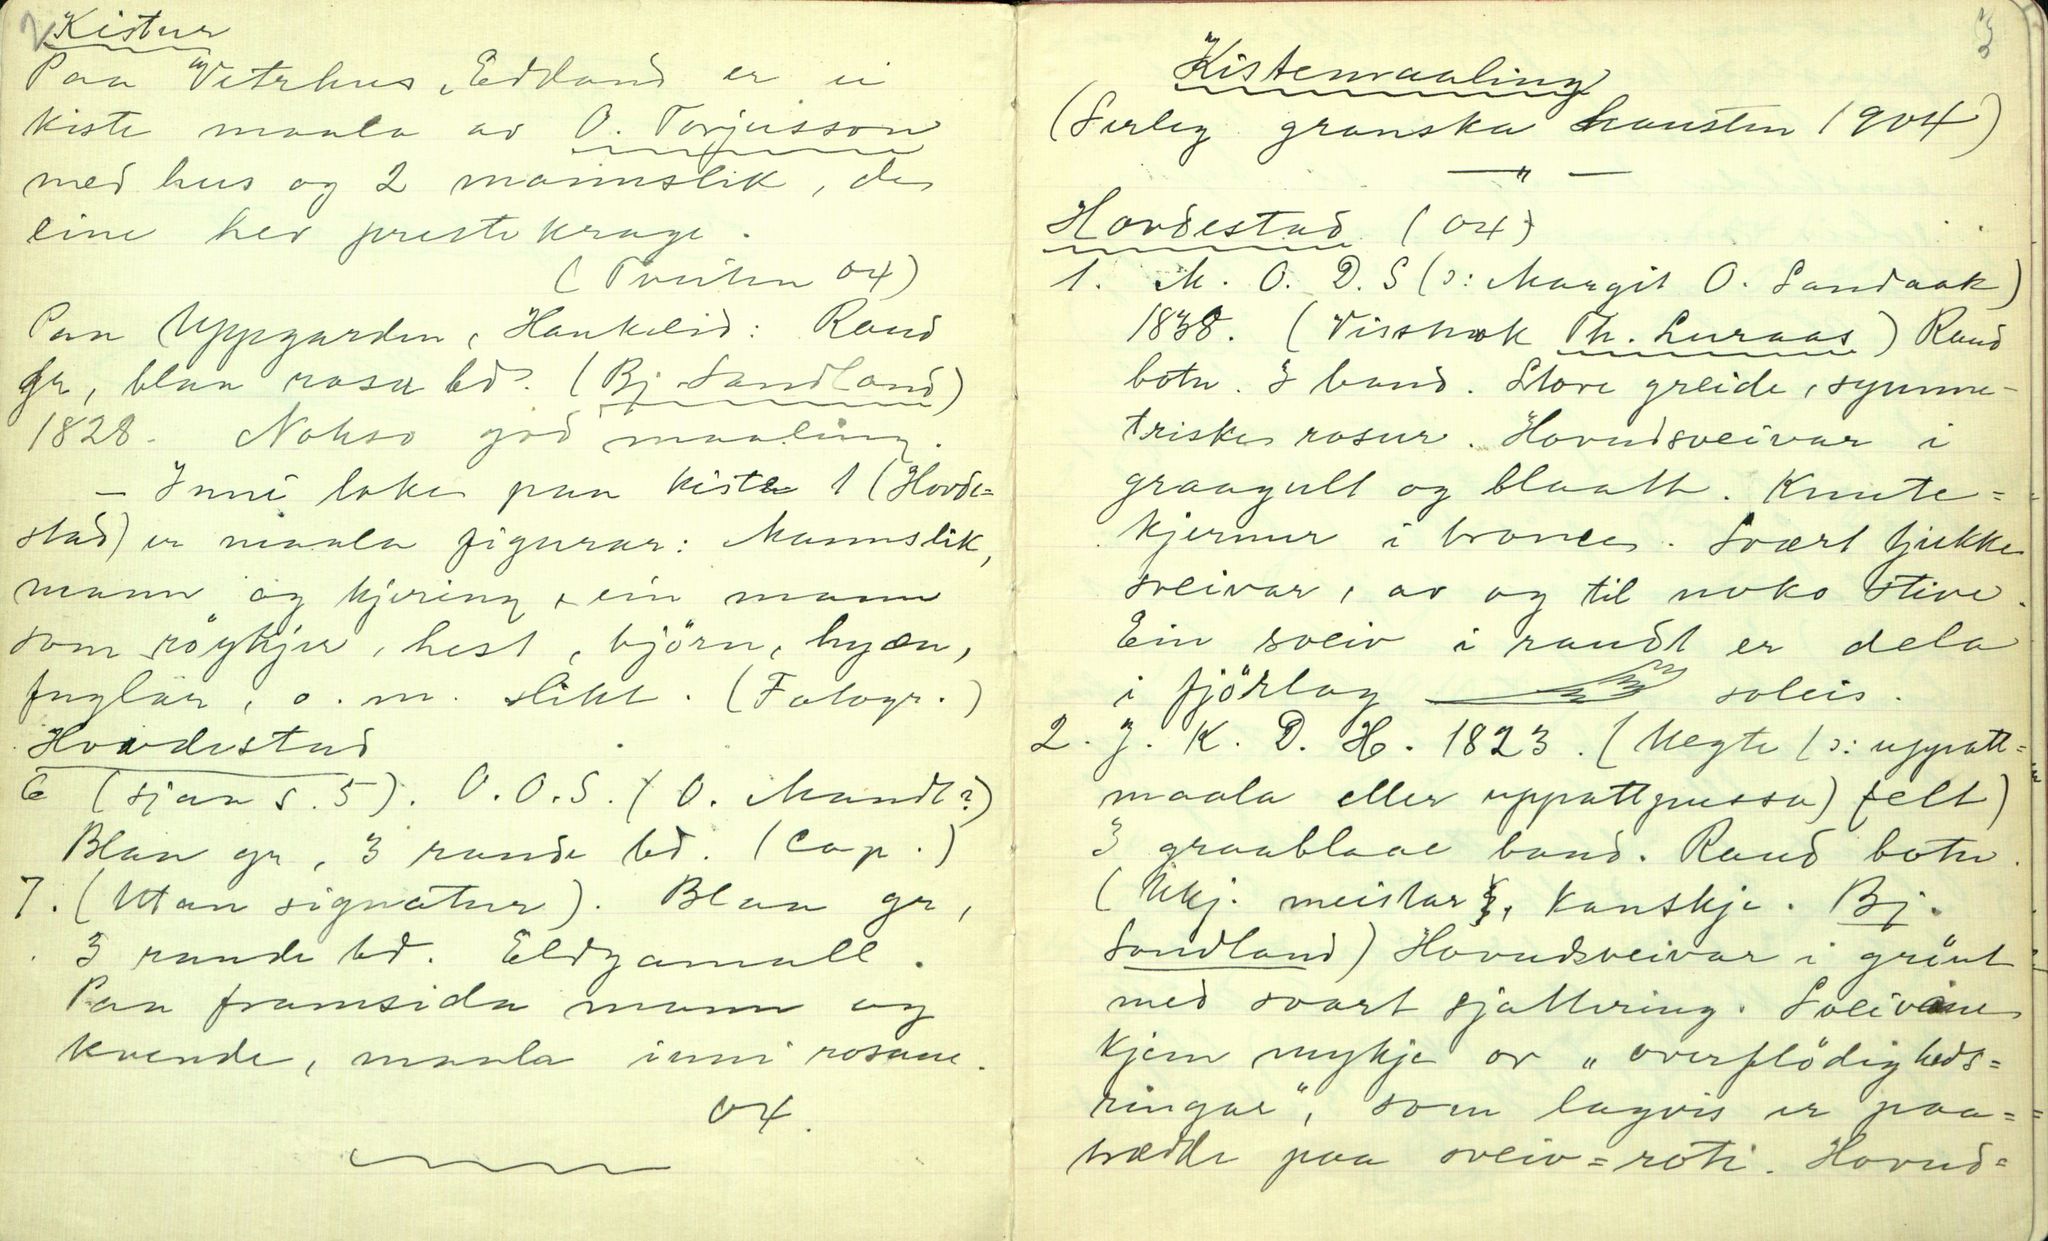 2
Kistur
Paa Vetrhus, Edland er ei
kiste maala av O. Torjusson
med hus og 2 mannslik, de
eine hev prestekrage.
(Tveiten 04)
Paa Uppgarden, Haukelid: Raud
gr, blaa rosu bd. (Bj. Sandland)
1828. Nokso god maaling.
– Inni loke paa kiste 1 (Hovde=
stad) er maala figurar: Mannslik,
mann og kjering, ein mann
som röykjer, hest, björn, hyæn,
fuglar, o. m. slikt. (Fotogr.)
Hovdestad
6 (sjaa s. 5). O. O. S. (O. Mandt?)
Blaa gr, 3 raude bd. (Cap.)
7. (Utan signatur). Blaa gr,
3 raude bd. Eldgamall.
Paa framsida mann og
kvende, maala inni rosane.
04.
3
Kistemaaling
(Serleg granska hausten 1904)
— " —
Hovdestad (04)
1. M. O. D. S (ɔ: Margit O. Sandaak)
1838. (Visstnok Th. Luraas) Raud
botn. 3 band. Store greide, symme-
triske rosur. Hovudsveivar i
graagult og blaatt. Knute=
kjernur i bronce. Svært tjukke
sveivar, av og til noko stive.
Ein sveiv i raudt er dela
i fjörlag soleis.
2. J. K. D. H. 1823. (Uegte (ɔ: uppatt=
maala eller uppattpussa) felt)
3 graablaae band. Raud botn.
(Ukj. meistar, kanskje. Bj.
Sandland) Hovudsveivar i grönt
med svart sjattering. Sveivane
kjem mykje av „overflödigheds=
ringar", som lagvis er paa=
trædde paa sveiv=roti. Hovud=